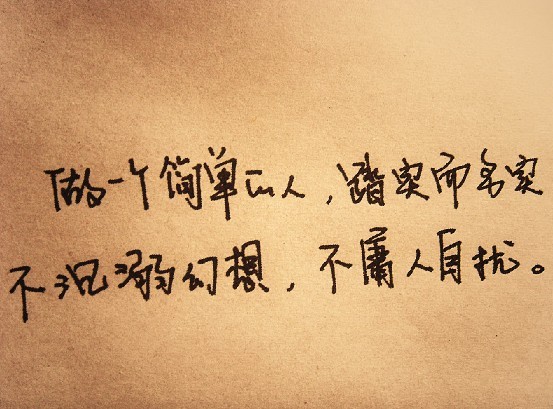 做一个简单的人，踏实而务实
不沉溺幻想，不庸人自扰。